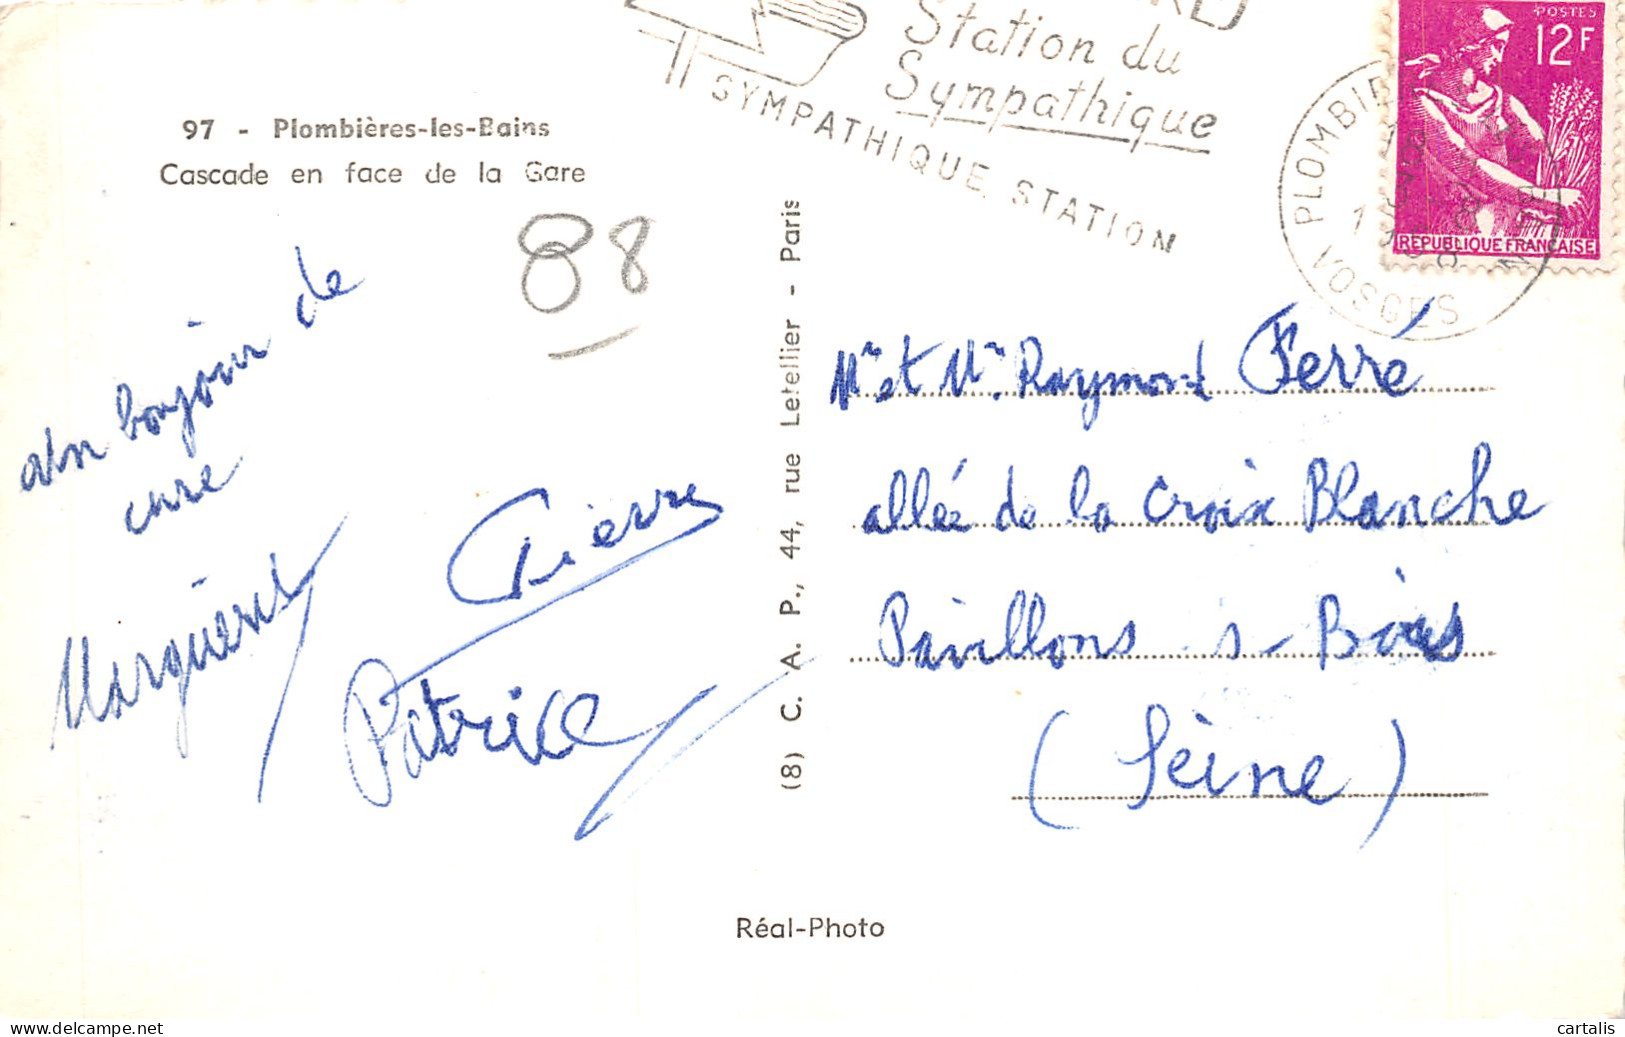 97 - Plombières-les-Bains
Cascade en face de la Gare
88
bonjour de
cure
Marguerite
Pierre
Patrice
(8) C. A. P., 44, rue Letellier - Paris
Réal-Photo
Station du
Sympathique
SYMPATHIQUE STATION
PLOMBIÈ
VOSGES
POSTES
12F
REPUBLIQUE FRANÇAISE
Mr et Me Raymond Ferré
allée de la Croix Blanche
Pavillons s- Bois
(Seine)
cartalis
www.delcampe.net